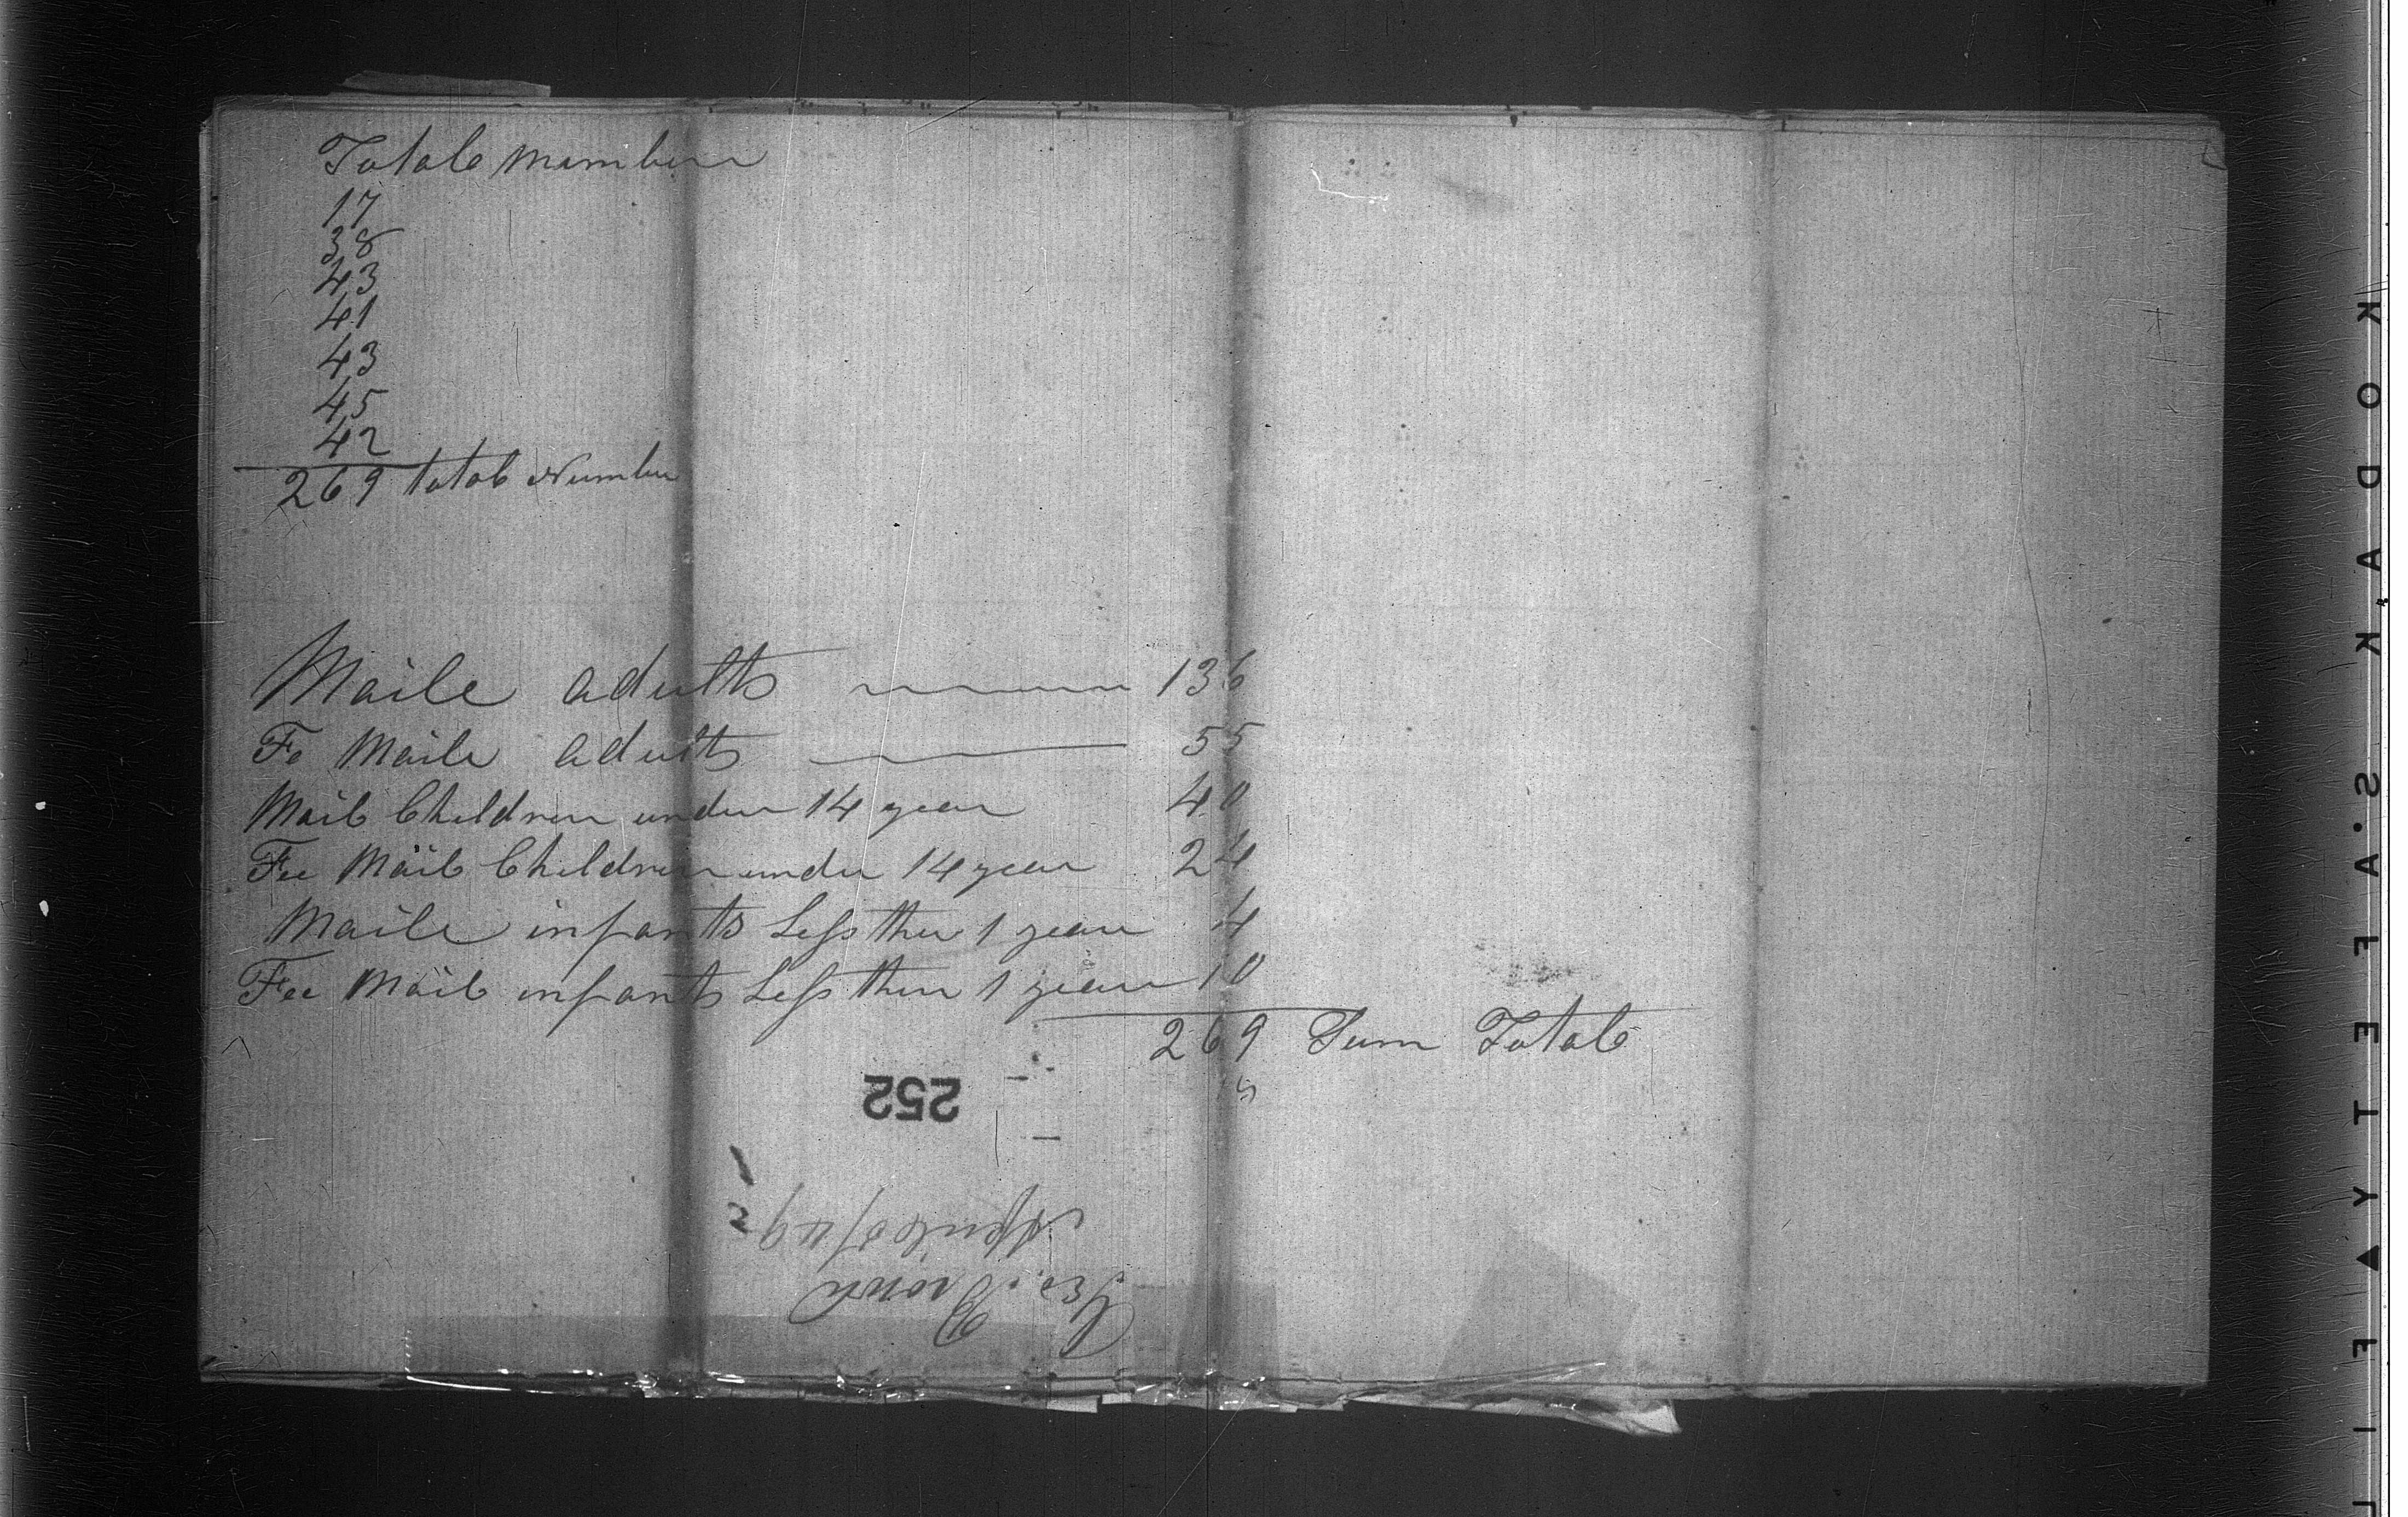 Total number
17
38
43
41
43
45
42
269 total Number
Maile adults 136
Fe Maile adults 55
Mail Children under 14 year 40
Fee Mail Children under 14 year 24
Maile infants Less then 1 year 4
Fee Mail infants Less then 1 year 10
269 Sum Total
252
2
April 3/49
Brown
KODAK
S.A.F.E.T.Y
F I L